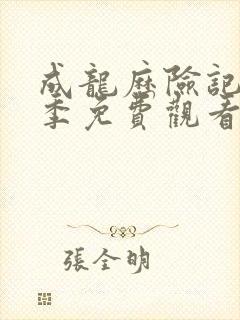 成龍歷險記
季免費觀看
張全明